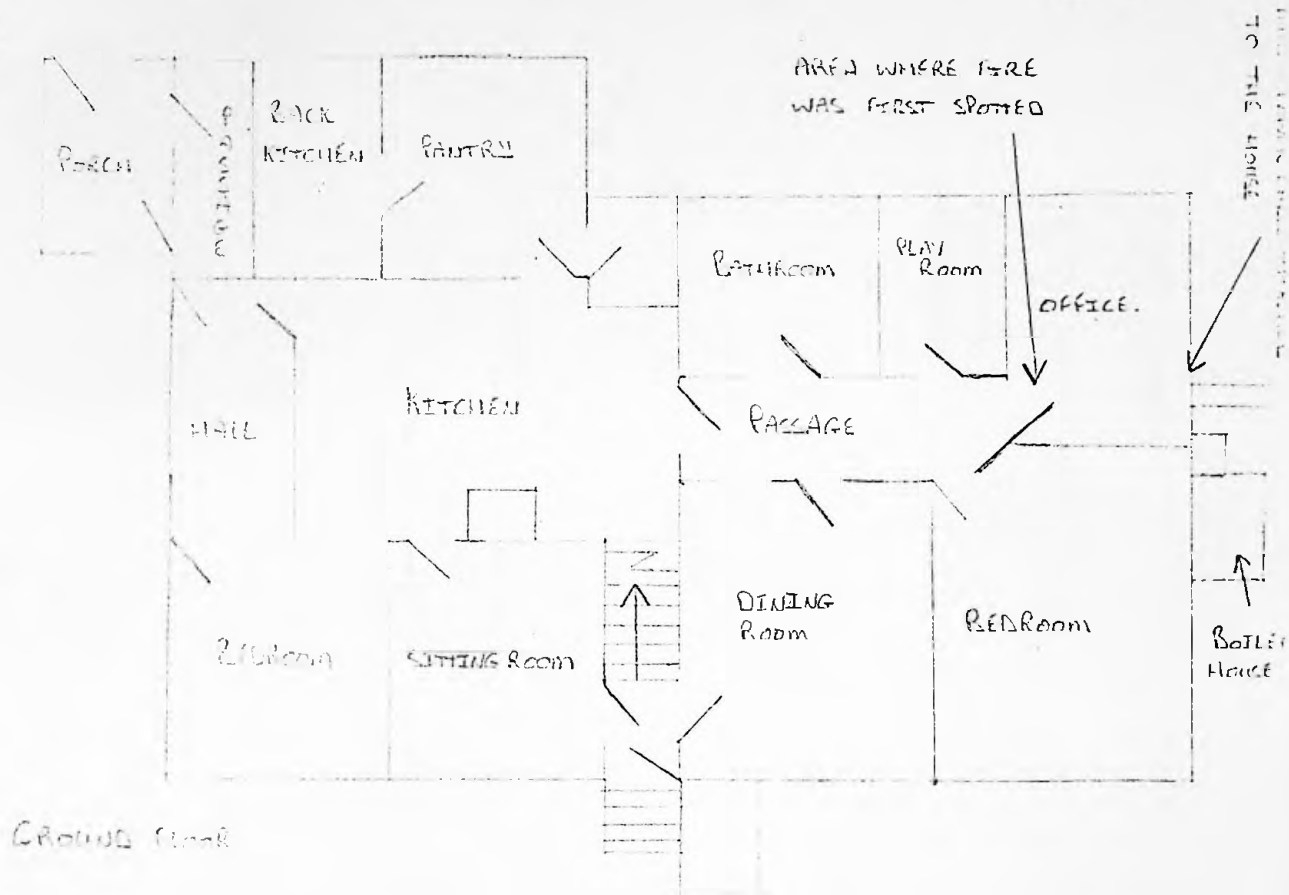 AREA WHERE FIRE
WAS FIRST SPOTTED
TO THE HOUSE
PORCH
BACK
KITCHEN
PANTRY
BATHROOM
PLAY
ROOM
OFFICE.
HALL
KITCHEN
PASSAGE
BEDROOM
SITTING ROOM
DINING
ROOM
BEDROOM
BOILER
HOUSE
GROUND FLOOR